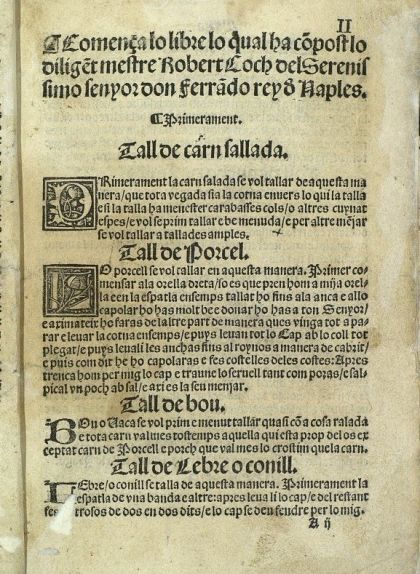 II
¶Comença lo libre lo q̃l ha cõpost lo
diligẽt mestre Robert Coch del Serenis
simo senyor don Ferrãdo rey đ Naples.
¶Primerament.
Tall de carn sallada.
PRimerament la carn salada se vol tallar de aquesta ma
nera/que tota vegada sia la cotna enuers lo qui la talla
e si la talla ha mester carabasses cols/o altres cuynat
espes/e vol se prim tallar e be menuda/e per altre mẽjar
se vol tallar a tallades amples.
Tall de Porcel.
LO porcell se vol tallar en aquesta manera. Primer co-
mensar ala orella dreta/so es que pren hom a mija orel
la e en la espatla ensemps tallat ho fins ala anca e allo
capolar ho has molt be e donar ho has a ton Senyor/
e a primateix ho faras de la ltre part de manera ques vinga tot a pa-
rar e leuar la cotna ensemps/e puys leuan tot lo Cap ab lo coll tot
plegat/e puys leuali les anchas fins al roynos a manera de cabrit/
e puis com dit he ho capolaras e ses costelles deles costes: Apres
trenca hom per mig lo cap e traune lo seruell tant com poras/e sal-
pical vn poch ab sal/e axi es la seu menjar.
Tall de bou.
BOu o Vaca se vol prim e menut tallar quasi cõ a cosa ralada
e tota carn val mes tostemps aquella qui esta prop del os ex
ceptat carn de Porcell e porch que val mes lo crostim quela carn.
Tall de Lebre o conill.
LEbre/o conill se talla de aquesta manera. Primerament la
espatla de vna banda e altre: apres leua li lo cap/e del restant
fes trosos de dos en dos dits/e lo cap se deu fendre per lo mig.
A ij